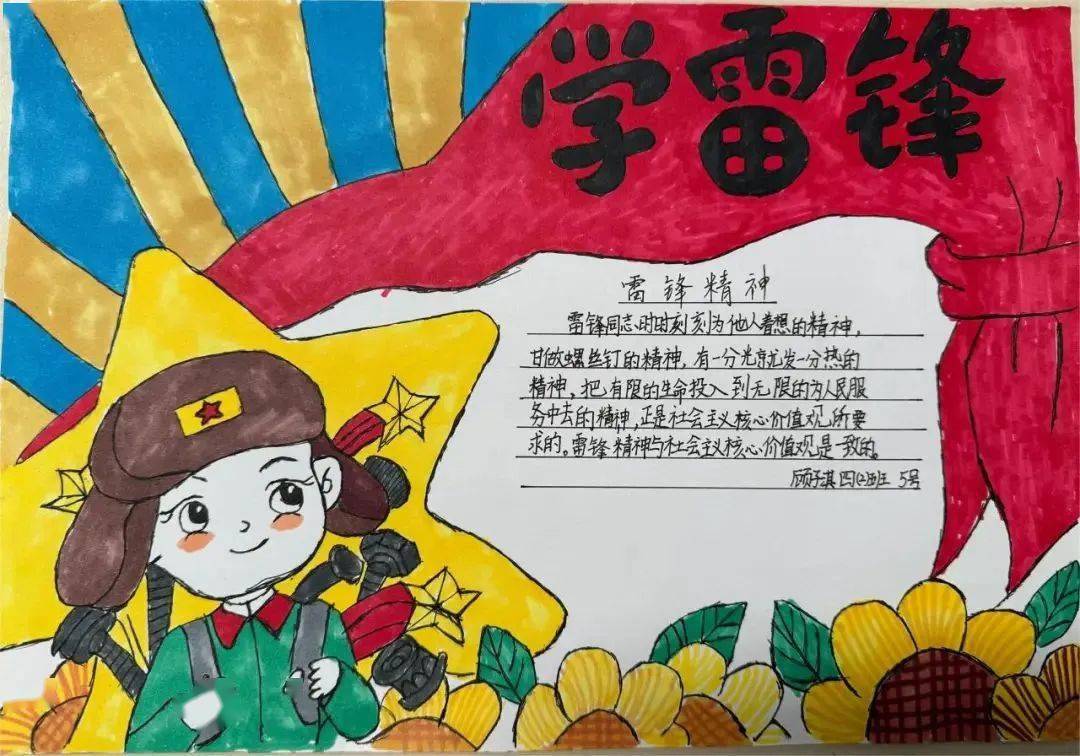 学雷锋
雷锋精神
雷锋同志时时刻刻为他人着想的精神,
甘做螺丝钉的精神,有一分光就发一分热的
精神,把有限的生命投入到无限的为人民服
务中去的精神,正是社会主义核心价值观所要
求的。雷锋精神与社会主义核心价值观是一致的。
顾子淇 四(2)班 5号